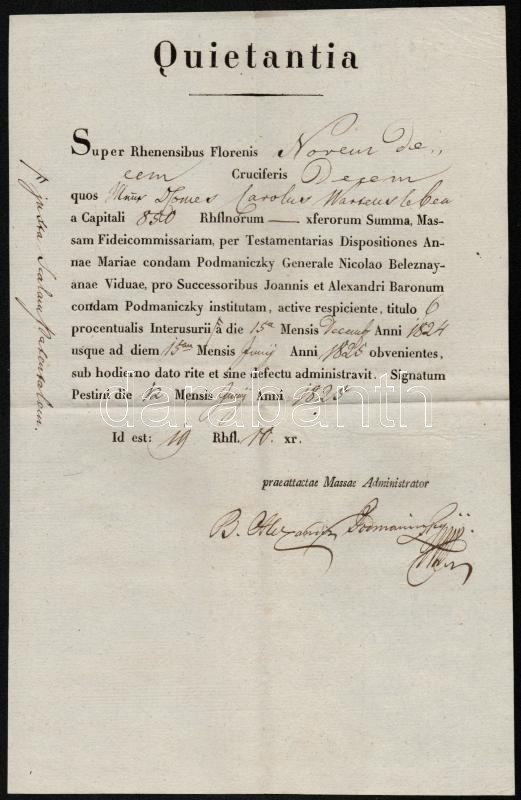 Quietantia
Super Rhenensibus Florenis Novem De-
cem Cruciferis Decem
quos Carolus
a Capitali 830 Rhflnorum — xferorum Summa, Mas-
sam Fideicommissariam, per Testamentarias Dispositiones An-
nae Mariae condam Podmaniczky Generale Nicolao Beleznay-
anae Viduae, pro Successoribus Joannis et Alexandri Baronum
condam Podmaniczky institutam, active respiciente, titulo 6
procentualis Interusurii a die 15a Mensis Decemb Anni 1824
usque ad diem 15am Mensis Junij Anni 1825 obvenientes,
sub hodierno dato rite et sine defectu administravit. Signatum
Pestini die 12 Mensis Junij Anni 1825
Id est: 19 Rhfl. 10. xr.
praeattactae Massae Administrator
B. Alexander Podmaniczky
juxta Scalam
darabanth